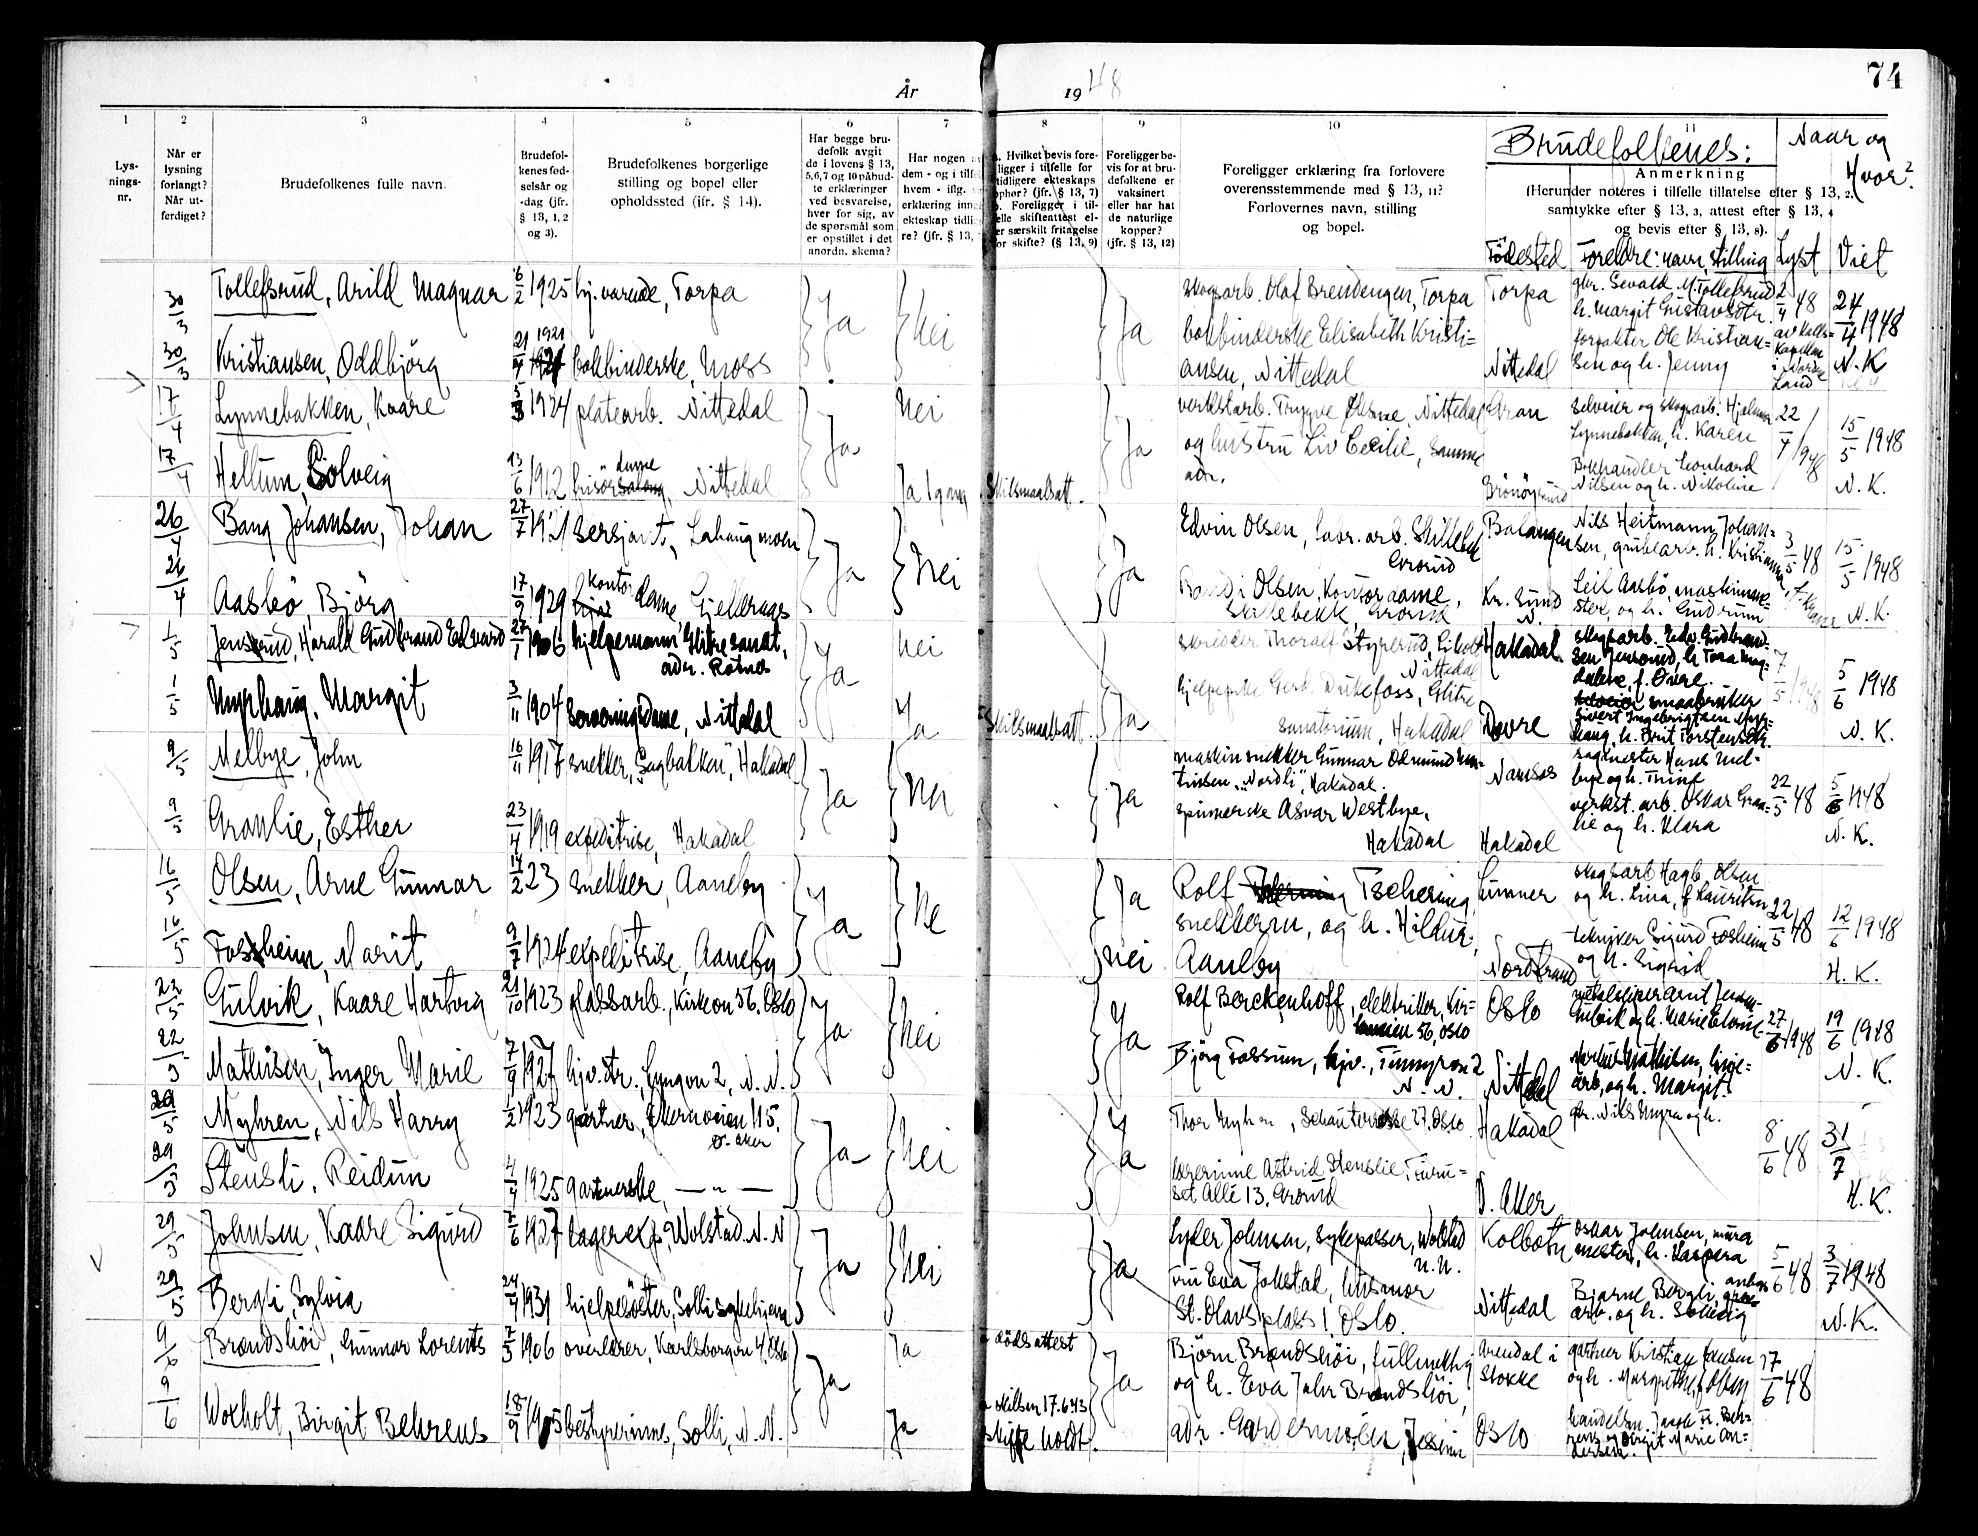 74
År 1948
1 2 3 4 5 6 7 8 9 10 11
Lys-
nings-
nr.
Når er
lysning
forlangt?
Når ut-
ferdiget?
Brudefolkenes fulle navn.
Brudefol-
kenes fød-
selsår og
-dag (jfr.
§ 13, 1, 2
og 3).
Brudefolkenes borgerlige
stilling og bopel eller
opholdssted (jfr. § 14).
Har begge bru-
defolk avgit
de i lovens § 13,
5,6,7 og 10 påbud-
te erklæringer
ved besvarelse,
hver for sig, av
de spørsmål som
er opstillet i det
anordn. skema?
Har nogen av
dem - og i tilf
hvem - iflg.
erklæring inn
ekteskap tidli
re? (jfr. § 13,
Hvilket bevis fore-
ligger i tilfelle for
tidligere ekteskaps
ophør? (jfr. § 13, 7)
Foreligger i til-
elle skifteattest el-
er særskilt fritagelse
for skifte? (§ 13, 9)
Foreligger be-
vis for at bru-
defolkene er
vaksinert
eller har hat
de naturlige
kopper?
(jfr. § 13, 12)
Foreligger erklæring fra forlovere
overensstemmende med § 13, 11?
Forlovernes navn, stilling
og bopel.
Brudefolkenes:
Anmerkning
(Herunder noteres i tilfelle tillatelse efter § 13, 2,
samtykke efter § 13, 3, attest efter § 13, 4
og bevis efter § 13, 8).
Naar og
Hvor?
Fødested Foreldre: navn, stilling Lyst Viet
30/3 Tollefsrud, Arild Magnar 6/2 1925 hj. værende, Torpa Ja Nei Ja skogsarb. Olaf Brendengen, Torpa Torpa gbr. Sevald M. Tollefsrud
h. Margit Gustavsdtr. 2/4 48 24/4 1948
30/3 Kristiansen, Oddbjörg 21/4 1921 bokbinderske, Moss bokbinderske Elisabeth Kristi-
ansen, Nittedal Nittedal forpakter Ole Kristian-
sen og h. Jenny N. K
17/4 Lynnebakken, Kaare 5/3 1924 platearb. Nittedal Ja Nei Ja verkstarb. Trygve Olsen, Nittedal Gran selveier og skogsarb. Hjalmar
Lynnebakken, h. Karen 22/4 1948 15/5 1948
17/4 Hellum, Solveig 13/6 1912 frisördame Nittedal Ja 1 gang Skilsmaalsatt. og hustru Liv Cecilie, samme
adr. Brönöysund Bokhandler Leonhard
Nilsen og h. Nikoline N. K.
26/4 Bang Johansen, Johan 27/7 1921 sersjant, Lahaugmoen Ja Nei Ja Edvin Olsen, fabr. arb. Skillebekk
Grorud Balangen Nils Heitmann Johan-
sen, grubearb. h. Kristianna, 3/5 48 15/5 1948
26/4 Aasbö, Björg 17/9 1929 kontordame Gjelleraas Olsen, Kontordame,
Skillebekk, Grorud Kr. Sund
N. Leif Aasbö, maskinme-
ster, og h. Gudrun N. K.
1/5 Jensrud, Harald Gudbrand Edvard 27/1 1906 hjelpemann Glitre sanat,
adr. Rotnes Ja Nei Ja skredder Thoralf Styrerud,
Nittedal Hakadal skogsarb. Edv. Gudbrand-
sen Jensrud, h. Tora Mag-
dalene, f. Övre. 7/5 1948 5/6 1948
1/5 Myrhaug, Margit 3/11 1904 serveringsdame, Nittedal Ja Skilsmaalsatt. hjelpepike Gerd Dukefoss, Glitre
sanatorium, Hakadal Dovre smaabruker
Sivert Ingebrigtsen Myr-
haug, h. Brit Torstensdtr. N. K.
9/5 Melbye, John 16/11 1917 snekker, "Sagbakken", Hakadal Ja Nei Ja maskinsnekker Gunnar Odmund
"Nordli", Hakadal. Namsos sagmester Hans Mel-
bye og h. Trine 22/5 48 5/6 1948
9/5 Granlie, Esther 23/4 1919 expeditrise, Hakadal spinnerske Asvar Westbye,
Hakadal Hakadal verkst. arb. Oskar Gran-
lie og h. Klara N. K.
16/5 Olsen, Arne Gunnar 14/2 23 snekker, Aaneby Ja Ne Ja Rolf Tschering, Lunner skogsarb Hagb. Olsen
og h. Lina, f Lauritsen 22/5 48 12/6 1948
16/5 Fossheim, Marit 9/7 1924 expeditrise, Aaneby nei snekkerm, og h. Hildur,
Aaneby Nordstrand Sigurd Fosheim
og h. Sigrid H. K.
22/5 Gulvik, Kaare Hartvig 21/10 1923 glassarb., Kirkevn 56, Oslo Ja Nei Ja Rolf Berckenhoff, elektriker, Kir-
keveien 56, Oslo Oslo metalsliper Arnt
Gulvik og h. Marie 27/6 1948 19/6 1948
22/5 Mathisen, Inger Marie 7/9 1927 Lyngvn 2, N. N. Björg Fossum, hjv., Timyrvn 2
N. N. Nittedal Mathisen, linje-
arb, og h. Margit N. K.
29/5 Myhren, Nils Harry 9/2 1923 gartner, Økernveien 115,
Ö. Aker Ja Nei Ja Thor Myhren, 27, Oslo Hakadal gbr. Nils Myra og h. 8/6 48 31/7
29/5 Stensli, Reidun 4/4 1925 gartnerske, — " — lærerinne Astrid Stenslie, Furu-
set Alle 13, Grorud Ö. Aker H. K.
29/5 Johnsen, Kaare Sigurd 7/6 1927 lagerexp, Wolstad. N. N Ja Nei Ja Lyder Johnsen, sykepasser, Wolstad
N. N. Kolbotn Oskar Johnsen, mura
mester, h. Kaspera 5/6 48 3/7 1948
29/5 Bergli, Sylvia 24/4 1931 hjelpesöster, Solli sykehjem fru Eva Jokstad, husmor
St. Olavs plass 1, Oslo. Nittedal Bjarne Bergli, anlegs
arb. og h. Solveig N. K.
9/6 Brandshöi, Gunnar Lorents 7/5 1906 overlærer, Karlsborgvn 4, Oslo Ja Ja dödsattest Ja Björn Brandshöi, fullmektig Arendal i
Stokke gartner Kristian Jansen
og h. Margrethe f Olsen 17/6 48
9/6 Woxholt, Birgit Behrens 18/9 1905 bestyrerinne, Solli, N. N. Ja skilsm 17.6 43
skifte holdt. og h. Eva Jahr Brandshöi,
adr. Gardermoen, Jessheim Oslo handelsm. Jacob Fr. Beh-
rens og Birgit Marie An-
dersen.